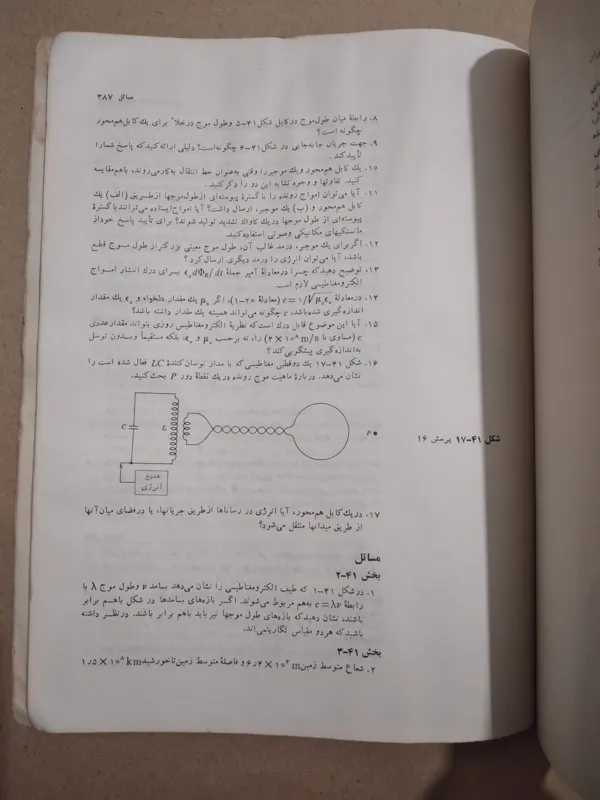 مسائل ۳۸۷
۸. رابطهٔ میان طول‌موج درکابل شکل۴۱-۵ وطول موج درخلاء برای یك کابل‌هم‌محور
چگونه است؟
۹. جهت جریان جا به‌جایی در شکل۴۱-۶ چگونه‌است؟ دلیلی ارائه‌کنیدکه پاسخ شمارا
تأییدکند.
۱۰. یك کابل هم‌محور ویك موجبررا وقتی به‌عنوان خط انتقال به‌کارمی‌روند، باهم‌مقایسه
کنید. تفاوتها و وجوه تشابه این دو را ذکرکنید.
۱۱. آیا می‌توان امواج رونده را باگسترهٔ پیوسته‌ای ازطول‌موجها ازطریق (الف) یك
کابل هم‌محور و (ب) یك موجبر، ارسال داشت؟ آیا امواج‌ایستاده می‌توانندباگسترهٔ
پیوسته‌ای از طول موجها دریك کاواك تشدید تولید شوند؟ برای تأیید پاسخ خوداز
مانستگیهای مکانیکی وصوتی استفاده‌کنید.
۱۲. اگربرای یك موجبر، درمد غالب آن، طول موج معینی بزرگتراز طول مـوج قطع
باشد، آیا می‌توان انرژی را درمد دیگری ارسال‌کرد؟
۱۳. توضیح دهیدکه چـرا درمعادلهٔ آمپر جملهٔ ε₀dΦE/dt بـرای درك انتشار امـواج
الکترومغناطیسی لازم است.
۱۴. درمعادلهٔ c=۱/√μ₀ε₀ (معادلهٔ ۴۱-۲۰)، اگر μ₀ یك مقدار دلخواه و ε₀ یك مقدار
اندازه‌گیری شده‌باشد، c چگونه می‌تواند همیشه یك مقدار داشته باشد؟
۱۵. آیا این موضوع قابل درك است‌که نظریهٔ الکترومغناطیسی روزی بتواند مقدارعددی
c (مساوی با ۳×۱۰⁸m/s) را، نه برحسب μ₀ و ε₀، بلکه مستقیماً وبدون توسل
به‌اندازه‌گیری پیشگویی‌کند؟
۱۶. شکل ۴۱-۱۷ یك دوقطبی مغناطیسی‌که با مدار نوسان‌کنندهٔ LC فعال شده است را
نشان می‌دهد. دربارهٔ ماهیت موج رونده دریك نقطهٔ دور P بحث‌کنید.
C
L
P
منبع
انرژی
شکل ۴۱-۱۷ پرسش ۱۶
۱۷. دریك‌کابل هم‌محور، آیا انرژی در رساناها ازطریق جریانها، یا درفضای میان‌آنها
از طریق میدانها منتقل می‌شود؟
مسائل
بخش ۴۱-۲
۱. درشکل ۴۱-۱ که طیف الکترومغناطیسی را نشان می‌دهد بسامد ν وطول موج λ با
رابطهٔ c=λν به‌هم مربوط می‌شوند. اگـر بازه‌های بسامدها در شکل باهـم برابر
باشند، نشان دهیدکه بازه‌های طول موجها نیزباید باهم برابر باشند. درنظـر داشته
باشیدکه هردو مقیاس لگاریتمی‌اند.
بخش ۴۱-۳
۲. شعاع متوسط زمین